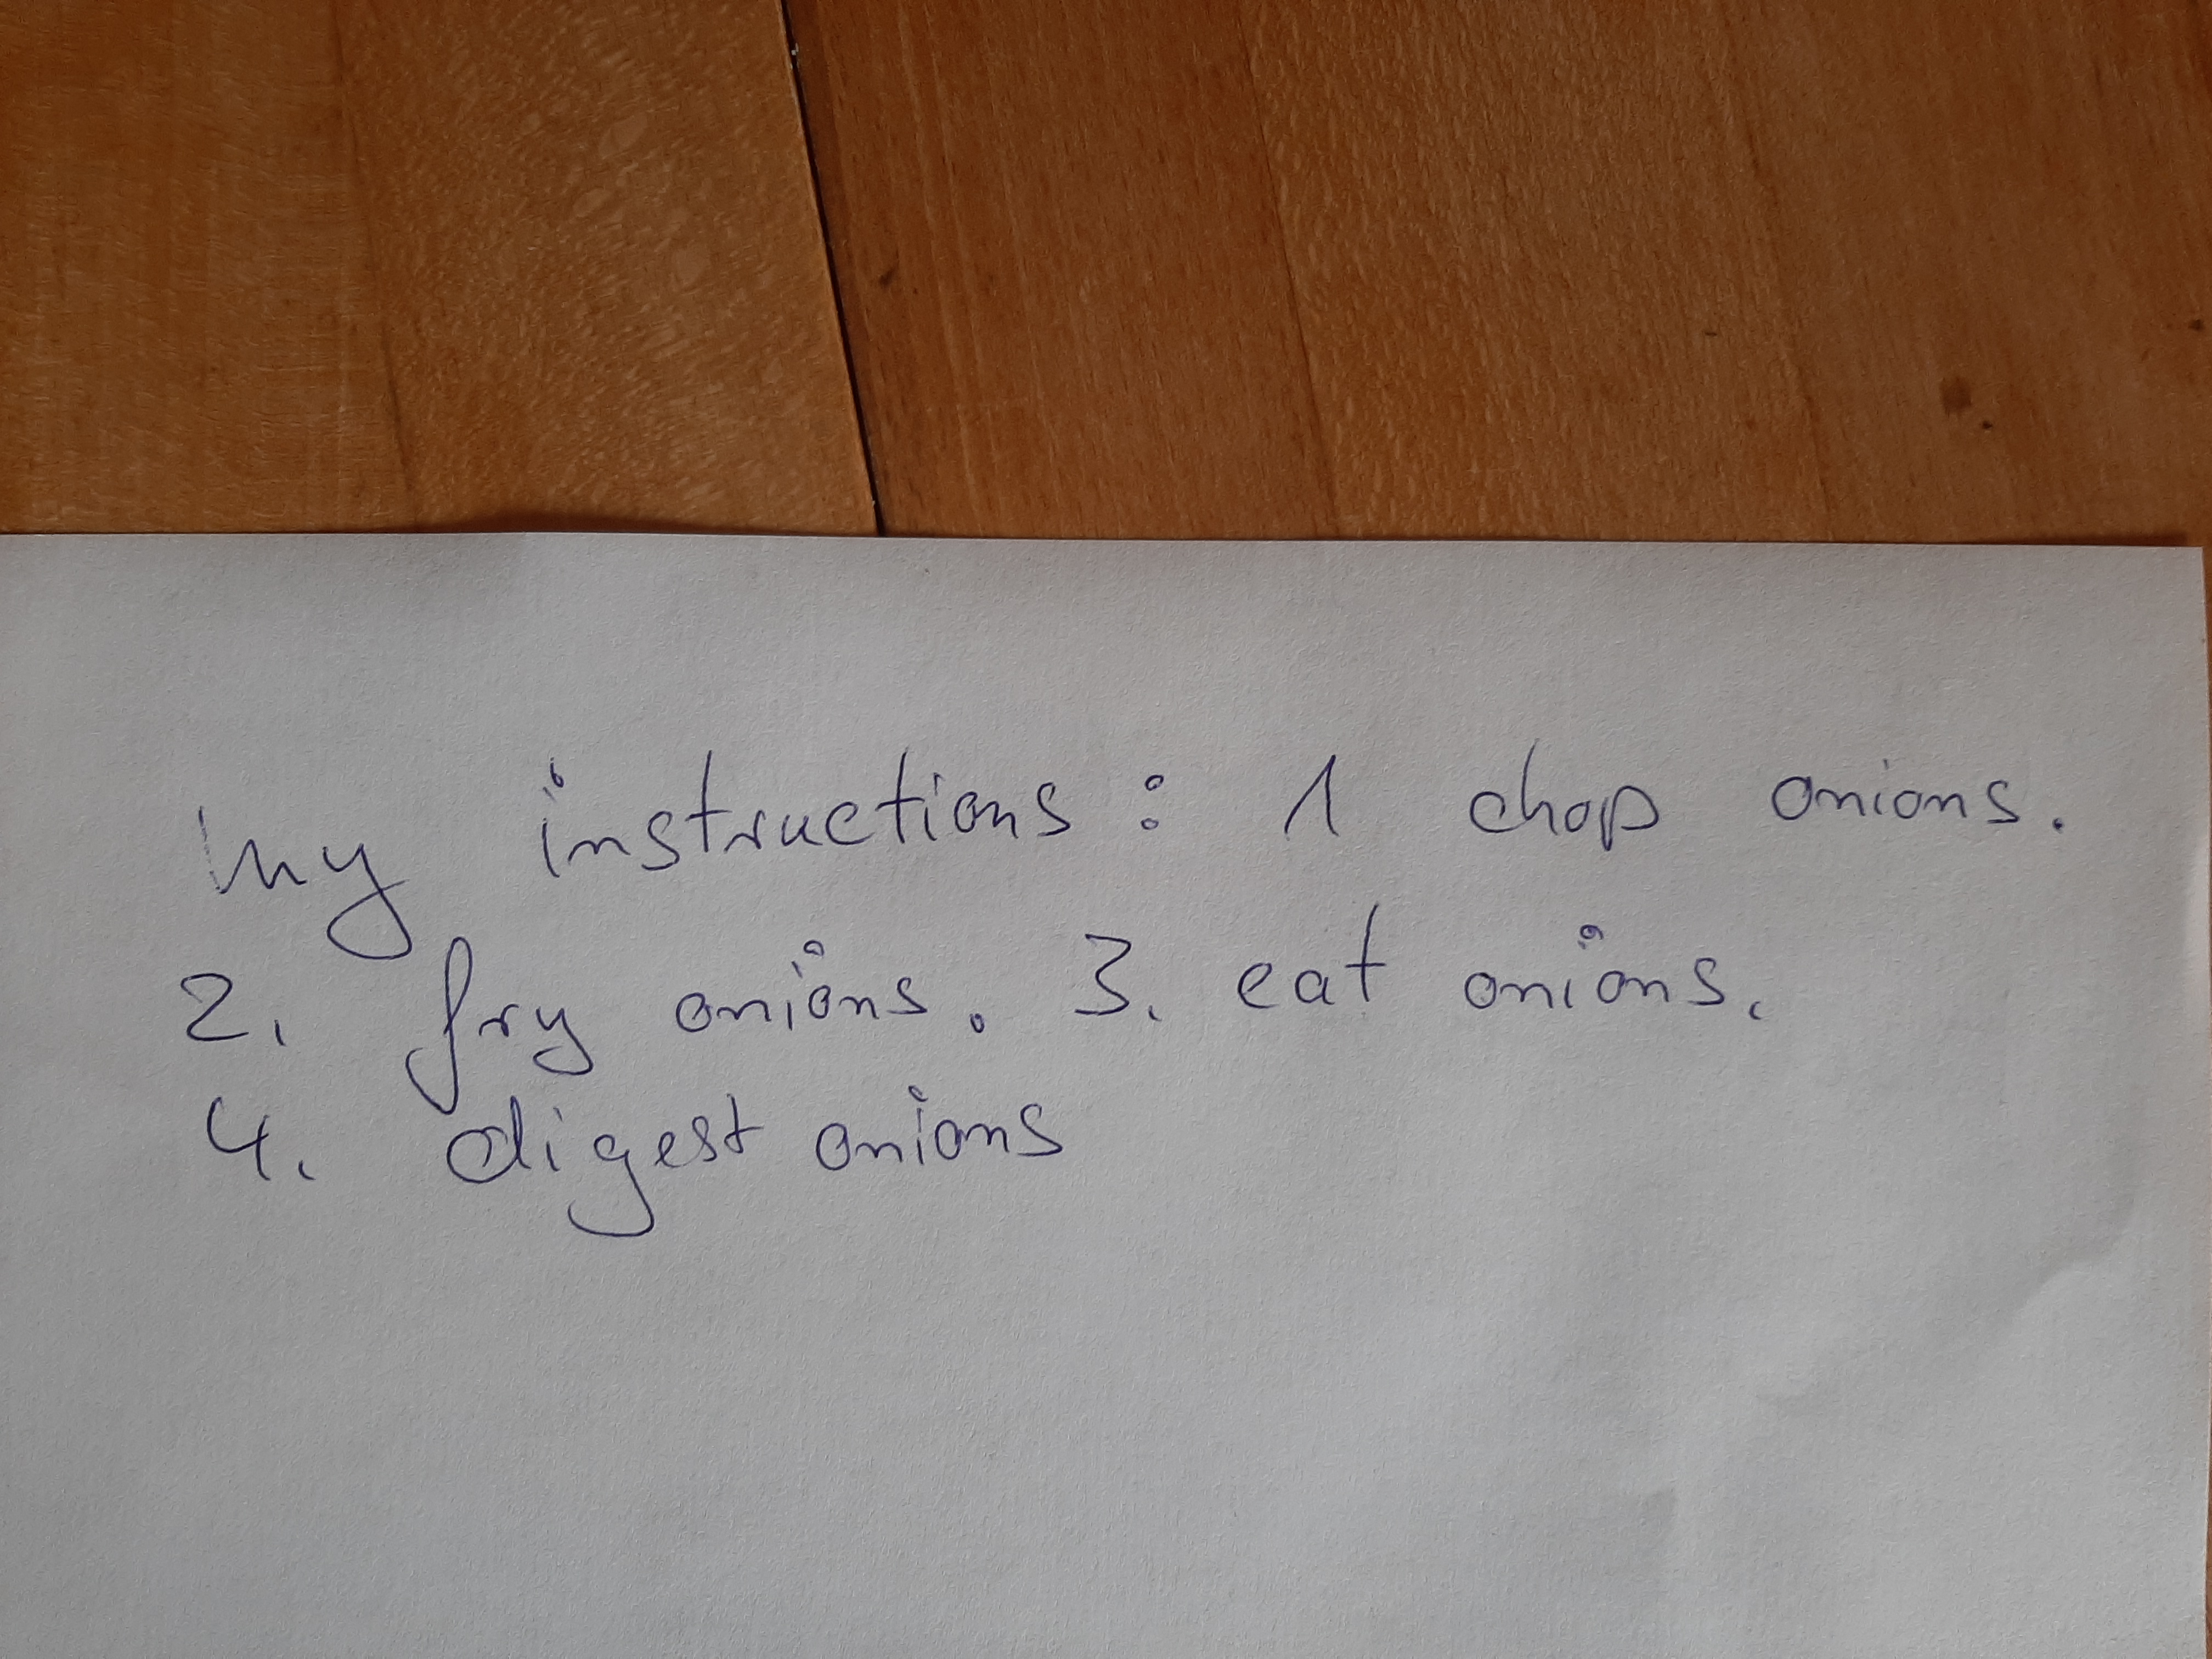 My instructions: 1 chop onions.
2. fry onions. 3. eat onions.
4. digest onions